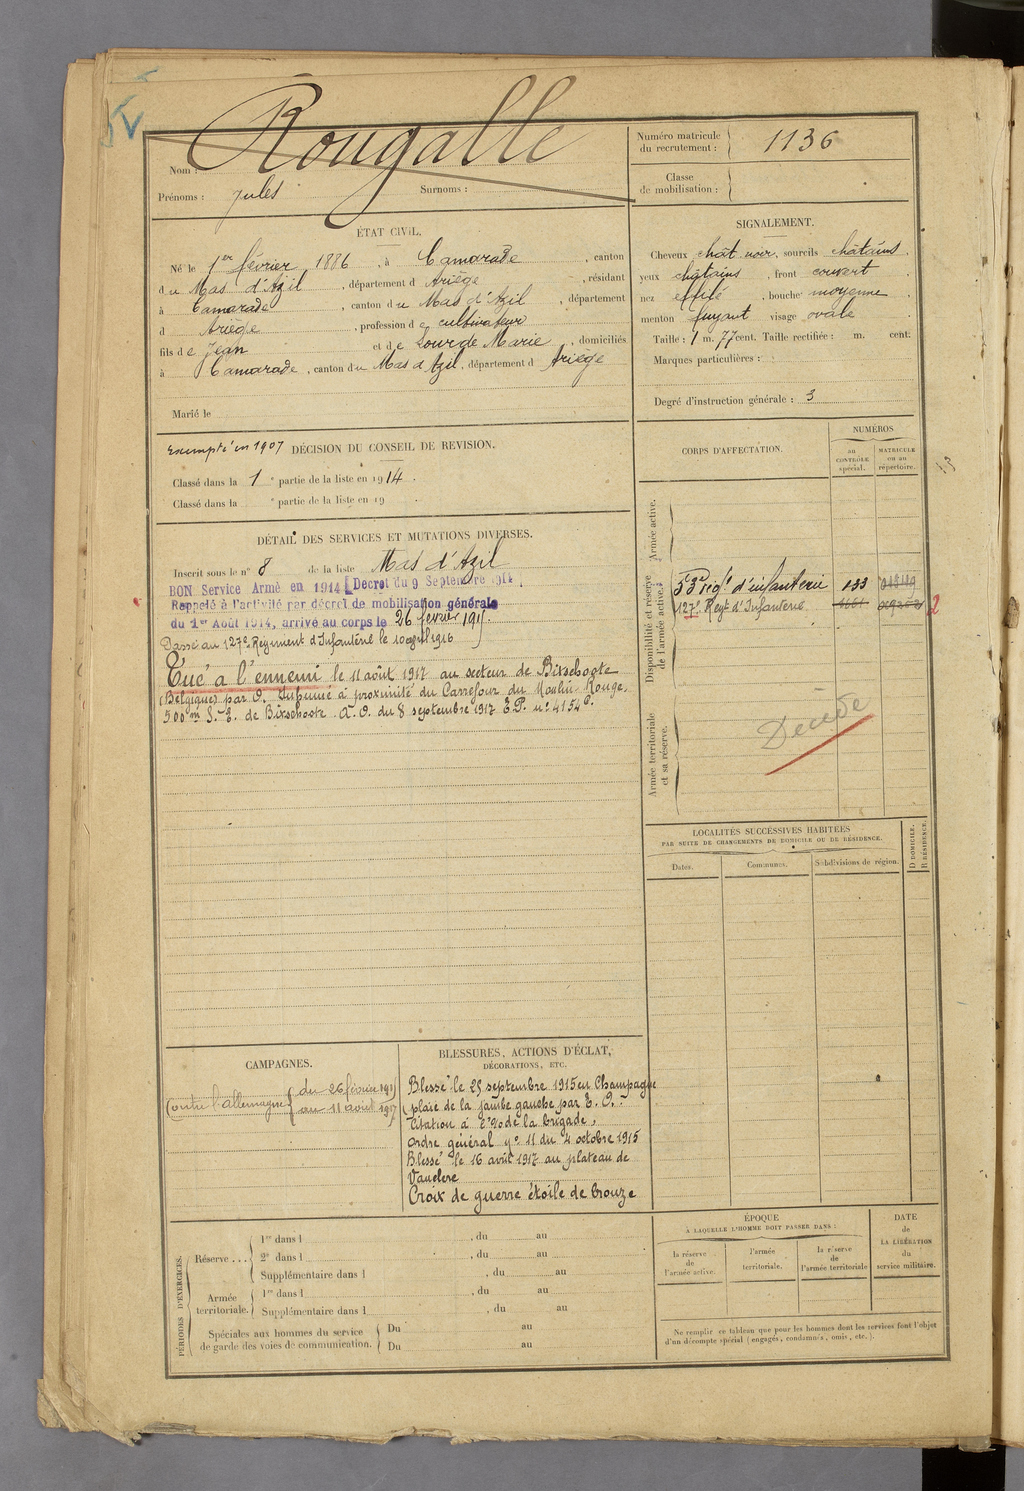 Rougalle
Nom :
Prénoms : Jules Surnoms :
Numéro matricule
du recrutement : 1136
Classe
de mobilisation :
ÉTAT CIVIL.
Né le 1er février 1886, à Camarade, canton
du Mas d'Azil, département d Ariège, résidant
à Camarade, canton du Mas d'Azil, département
d Ariège, profession de cultivateur
fils de Jean et de Lourde Marie, domiciliés
à Camarade, canton du Mas d'Azil, département d Ariège
Marié le
SIGNALEMENT.
Cheveux chât. noir, sourcils châtains
yeux châtains, front couvert
nez effilé, bouche moyenne
menton fuyant visage ovale
Taille : 1 m. 77 cent. Taille rectifiée : m. cent.
Marques particulières :
Degré d'instruction générale : 3
Exempté en 1907 DÉCISION DU CONSEIL DE REVISION.
Classé dans la 1e partie de la liste en 1914.
Classé dans la e partie de la liste en 19 .
DÉTAIL DES SERVICES ET MUTATIONS DIVERSES.
Inscrit sous le n° 8 de la liste Mas d'Azil
BON Service Armé en 1914 [Decret du 9 Septembre 1914
Rappelé à l'activité par décret de mobilisation générale
du 1er Août 1914, arrivé au corps le 26 février 1915.
Passé au 127e Régiment d'Infanterie le 10 avril 1916
Tué à l'ennemi le 11 août 1917 au secteur de Bixschoote
(Belgique) par O. Inhumé à proximité du Carrefour du Moulin Rouge,
500m S.-E. de Bixschoote A.O. du 8 septembre 1917 E.P. n° 4154 P.
CORPS D'AFFECTATION.
NUMÉROS
au
CONTRÔLE
spécial.
MATRICULE
ou au
répertoire.
Armée active.
Disponibilité et réserve
de l'armée active.
53e rég.t d'infanterie 133
127e Reg.t d'Infanterie
2
Armée territoriale
et sa réserve.
Décédé
LOCALITÉS SUCCESSIVES HABITÉES
PAR SUITE DE CHANGEMENTS DE DOMICILE OU DE RÉSIDENCE.
D DOMICILE.
R RÉSIDENCE.
Dates.
Communes.
Subdivisions de région.
CAMPAGNES.
Contre l'Allemagne du 26 février 1915
au 11 août 1917
BLESSURES, ACTIONS D'ÉCLAT,
DÉCORATIONS, ETC.
Blessé le 25 septembre 1915 en Champagne
(plaie de la jambe gauche par E.O.
Citation à l'o de la brigade,
ordre général n° 11 du 4 octobre 1915
Blessé le 16 avril 1917 au plateau de
Vauclere
Croix de guerre étoile de bronze
PÉRIODES D'EXERCICES.
Réserve...
1re dans l , du au
2e dans l , du au
Supplémentaire dans l , du au
Armée
territoriale.
1re dans l , du au
Supplémentaire dans l , du au
Spéciales aux hommes du service
de garde des voies de communication.
Du au
Du au
ÉPOQUE
À LAQUELLE L'HOMME DOIT PASSER DANS :
la réserve
de
l'armée active.
l'armée
territoriale.
la réserve
de
l'armée territoriale
DATE
de
LA LIBÉRATION
du
service militaire.
Ne remplir ce tableau que pour les hommes dont les services font l'objet
d'un décompte spécial (engagés, condamnés, omis, etc.).